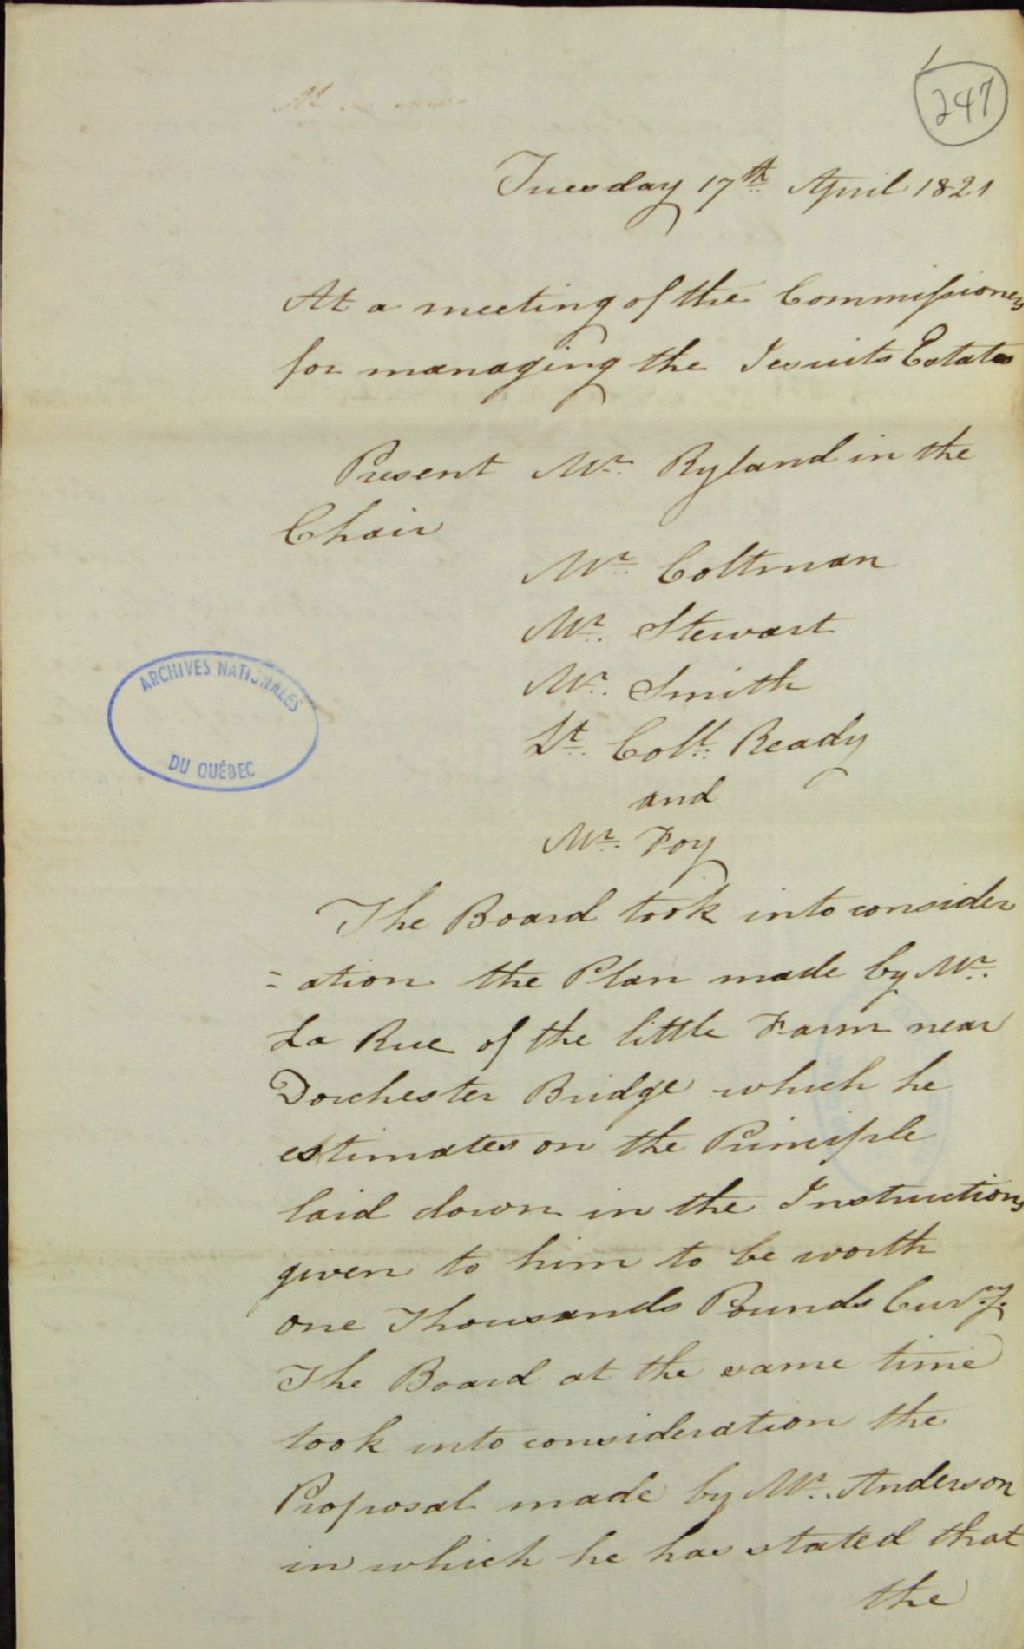 247
Tuesday 17th April 1821
At a meeting of the Commissioners
for managing the Jesuits Estates
Present Mr. Ryland in the
Chair
Mr. Coltman
Mr. Stewart
Mr. Smith
Lt. Coll. Ready
and
Mr. Foy
ARCHIVES NATIONALES
DU QUÉBEC
The Board took into consider
=ation the Plan made by Mr.
La Rue of the little Farm near
Dorchester Bridge which he
estimates on the Principle
laid down in the Instructions
given to him to be worth
one Thousands Pounds Curcy.
The Board at the same time
took into consideration the
Proposal made by Mr. Anderson
in which he has stated that
the